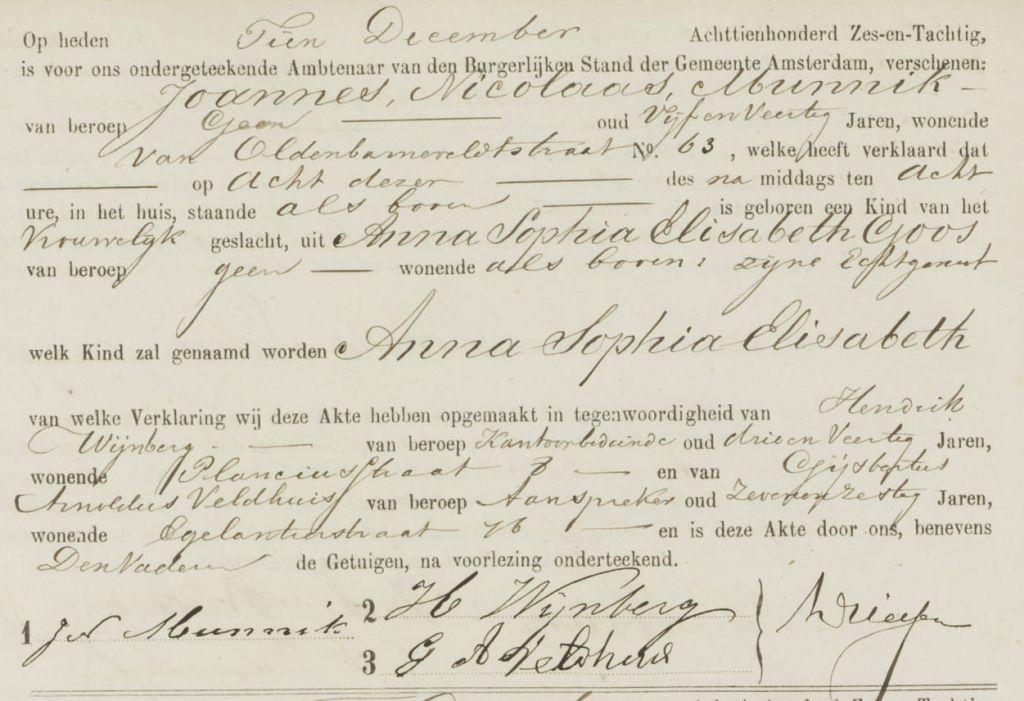 Op heden Tien December Achttienhonderd Zes-en-Tachtig,
is voor ons ondergeteekende Ambtenaar van den Burgerlijken Stand der Gemeente Amsterdam, verschenen:
Joannes, Nicolaas, Munnik
van beroep Geen oud Vijf en Veertig Jaren, wonende
Van Oldenbarneveldtstraat No. 63, welke heeft verklaard dat
op Acht dezer des na middags ten Acht
ure, in het huis, staande als boven is geboren een Kind van het
Vrouwelijk geslacht, uit Anna Sophia Elisabeth Goos,
van beroep geen wonende als boven: zijne Echtgenoot
welk Kind zal genaamd worden Anna Sophia Elisabeth
van welke Verklaring wij deze Akte hebben opgemaakt in tegenwoordigheid van Hendrik
Wijnberg van beroep Kantoorbediende oud drie en Veertig Jaren,
wonende Planciusstraat en van Gijsbertus
Arnoldus Veldhuis van beroep Aanspreker oud Zeven en zestig Jaren,
wonende Egelantierstraat 76 en is deze Akte door ons, benevens
Den Vader en de Getuigen, na voorlezing onderteekend.
1 J N Munnik 2 H Wijnberg
3 G A Veldhuis